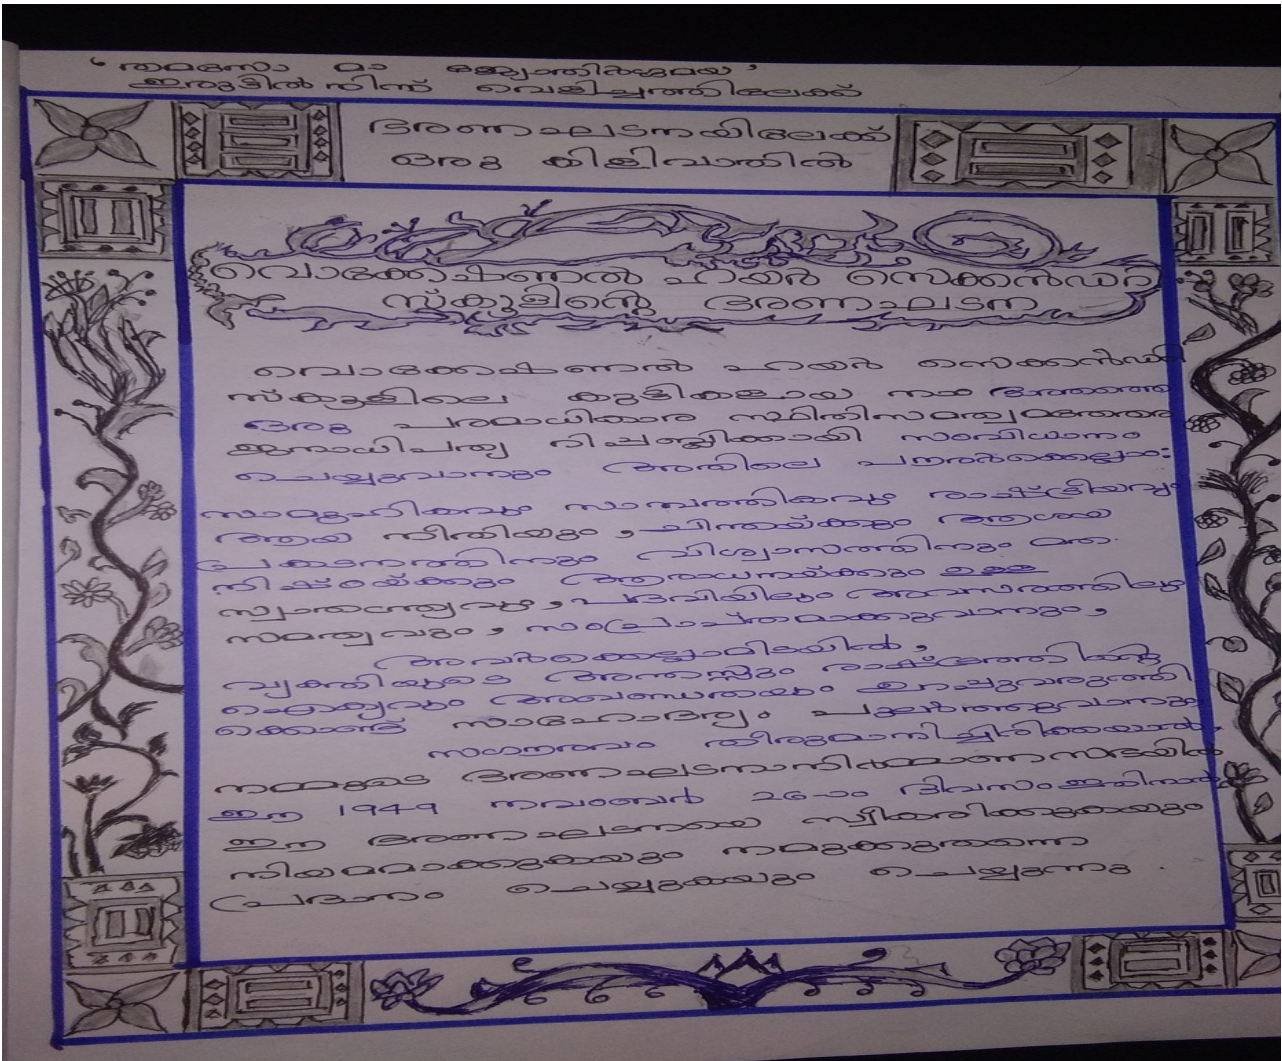 'തമസോ മാ ജ്യോതിർഗ്ഗമയ'
ഇരുട്ടിൽ നിന്ന് വെളിച്ചത്തിലേക്ക്
ഭരണഘടനയിലേക്ക്
ഒരു കിളിവാതിൽ
വൊക്കേഷണൽ ഹയർ സെക്കൻഡറി
സ്കൂളിന്റെ ഭരണഘടന
വൊക്കേഷണൽ ഹയർ സെക്കൻഡറി
സ്കൂളിലെ കുട്ടികളായ നാം ഭാരതത്തെ
ഒരു പരമാധികാര സ്ഥിതിസമത്വമതേതര
ജനാധിപത്യ റിപ്പബ്ലിക്കായി സംവിധാനം
ചെയ്യുവാനും അതിലെ പൗരർക്കെല്ലാം:
സാമൂഹികവും സാമ്പത്തികവും രാഷ്ട്രീയവും
ആയ നീതിയും, ചിന്തയ്ക്കും ആശയ
പ്രകടനത്തിനും വിശ്വാസത്തിനും മത
നിഷ്ഠയ്ക്കും ആരാധനയ്ക്കും ഉള്ള
സ്വാതന്ത്ര്യവും, പദവിയിലും അവസരത്തിലും
സമത്വവും, സംപ്രാപ്തമാക്കുവാനും,
അവർക്കെല്ലാമിടയിൽ,
വ്യക്തിയുടെ അന്തസ്സും രാഷ്ട്രത്തിന്റെ
ഐക്യവും അഖണ്ഡതയും ഉറപ്പുവരുത്തി
ക്കൊണ്ട് സാഹോദര്യം പുലർത്തുവാനും
സഗൗരവം തീരുമാനിച്ചിരിക്കയാൽ
നമ്മുടെ ഭരണഘടനാനിർമ്മാണസഭയിൽ
ഈ 1949 നവംബർ 26-ാം ദിവസം ഇതിനാൽ
ഈ ഭരണഘടനയെ സ്വീകരിക്കുകയും
നിയമമാക്കുകയും നമുക്കുതന്നെ
പ്രദാനം ചെയ്യുകയും ചെയ്യുന്നു.